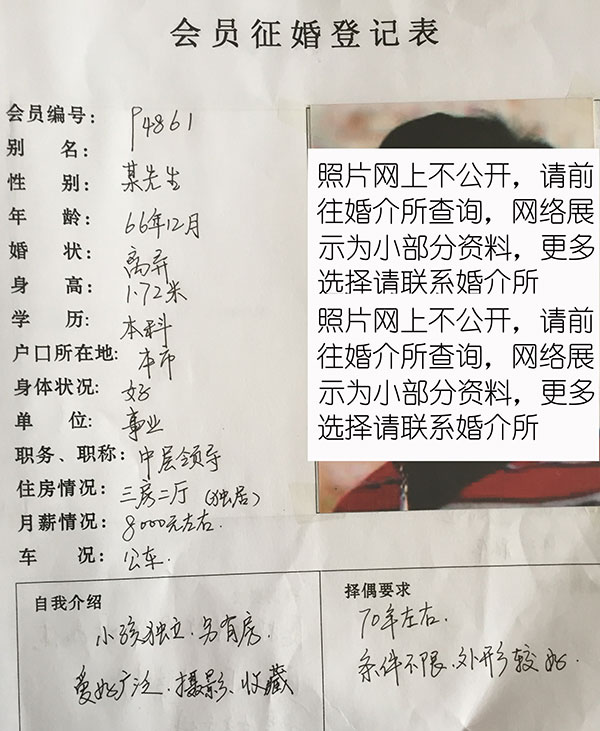 会员征婚登记表
会员编号: P4861
别 名:
性 别: 某先生
年 龄: 66年12月
婚 状: 离异
身 高: 1.72米
学 历: 本科
户口所在地: 本市
身体状况: 好
单 位: 事业
职务、职称: 中层领导
住房情况: 三房二厅(独居)
月薪情况: 8000元左右.
车 况: 公车.
照片网上不公开，请前
往婚介所查询，网络展
示为小部分资料，更多
选择请联系婚介所
照片网上不公开，请前
往婚介所查询，网络展
示为小部分资料，更多
选择请联系婚介所
自我介绍
小孩独立.另有房.
爱好广泛.摄影、收藏
择偶要求
70年左右.
条件不限.外形较好.